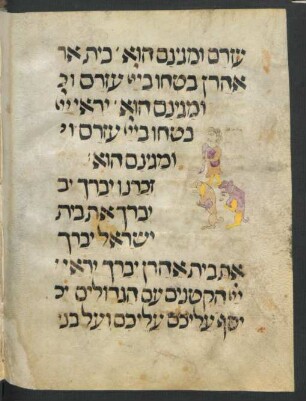 עזרם ומגינם הוא׳ בית אר
אהרן בטחו בייי עזרם ול
ומגינם הוא׳ יראי ייי
בטחו בייי עזרם ו
ומגינם הוא׳
זכרנו יברך יב
יברך את בית
ישראל יברך
את בית אהרן יברך יראי י
ייי הקטנים עם הגדולים יס
יסף עליכם עליכם ועל בני